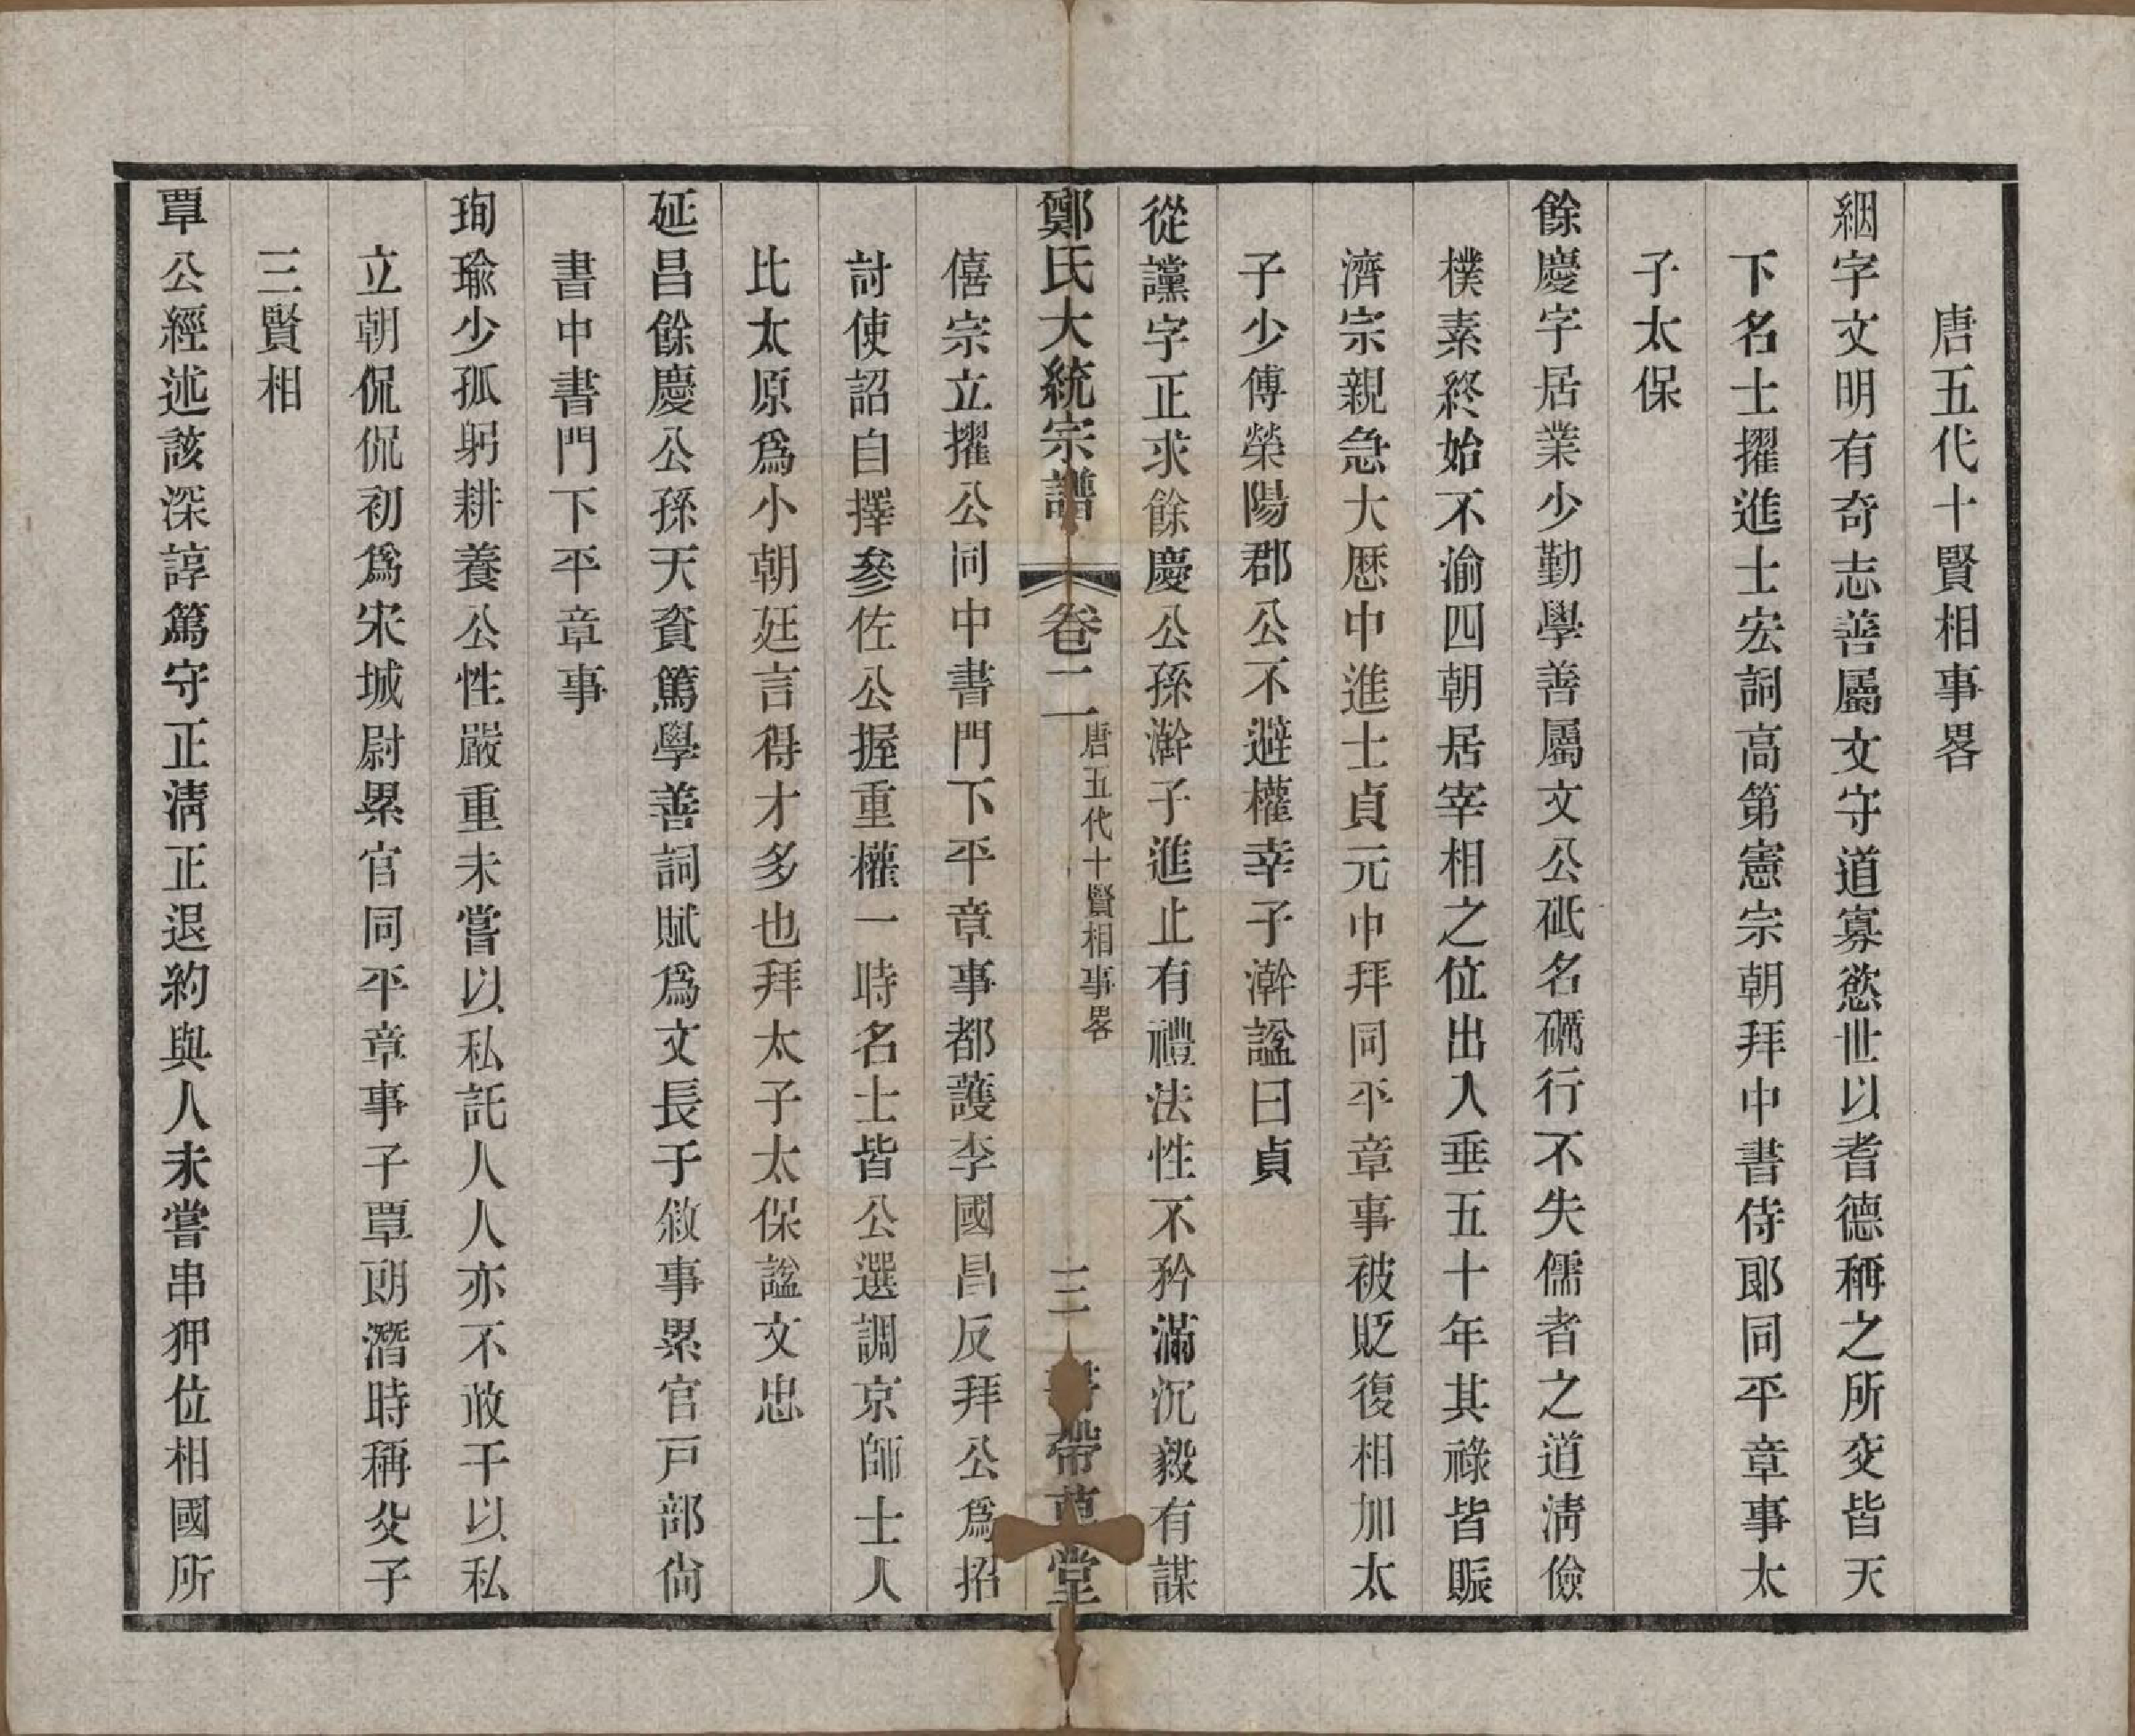 唐五代十賢相事畧
絪字文明有奇志善屬文守道寡慾世以耆德稱之所交皆天
下名士擢進士宏詞高第憲宗朝拜中書侍郎同平章事太
子太保
餘慶字居業少勤學善屬文公砥名礪行不失儒者之道淸儉
樸素終始不渝四朝居宰相之位出入垂五十年其祿皆賑
濟宗親急大厯中進士貞元中拜同平章事被貶復相加太
子少傅榮陽郡公不避權幸子澣謚曰貞
從讜字正求餘慶公孫澣子進止有禮法性不矜滿沉毅有謀
鄭氏大統宗譜 卷二 唐五代十賢相事畧 三 帶草堂
僖宗立擢公同中書門下平章事都護李國昌反拜公爲招
討使詔自擇參佐公握重權一時名士皆公選調京師士人
比太原爲小朝廷言得才多也拜太子太保謚文忠
延昌餘慶公孫天資篤學善詞賦爲文長于敘事累官戸部尙
書中書門下平章事
珣瑜少孤躬耕養公性嚴重未嘗以私託人人亦不敢干以私
立朝侃侃初爲宋城尉累官同平章事子覃朗潛時稱父子
三賢相
覃公經述該深諄篤守正淸正退約與人未嘗串狎位相國所